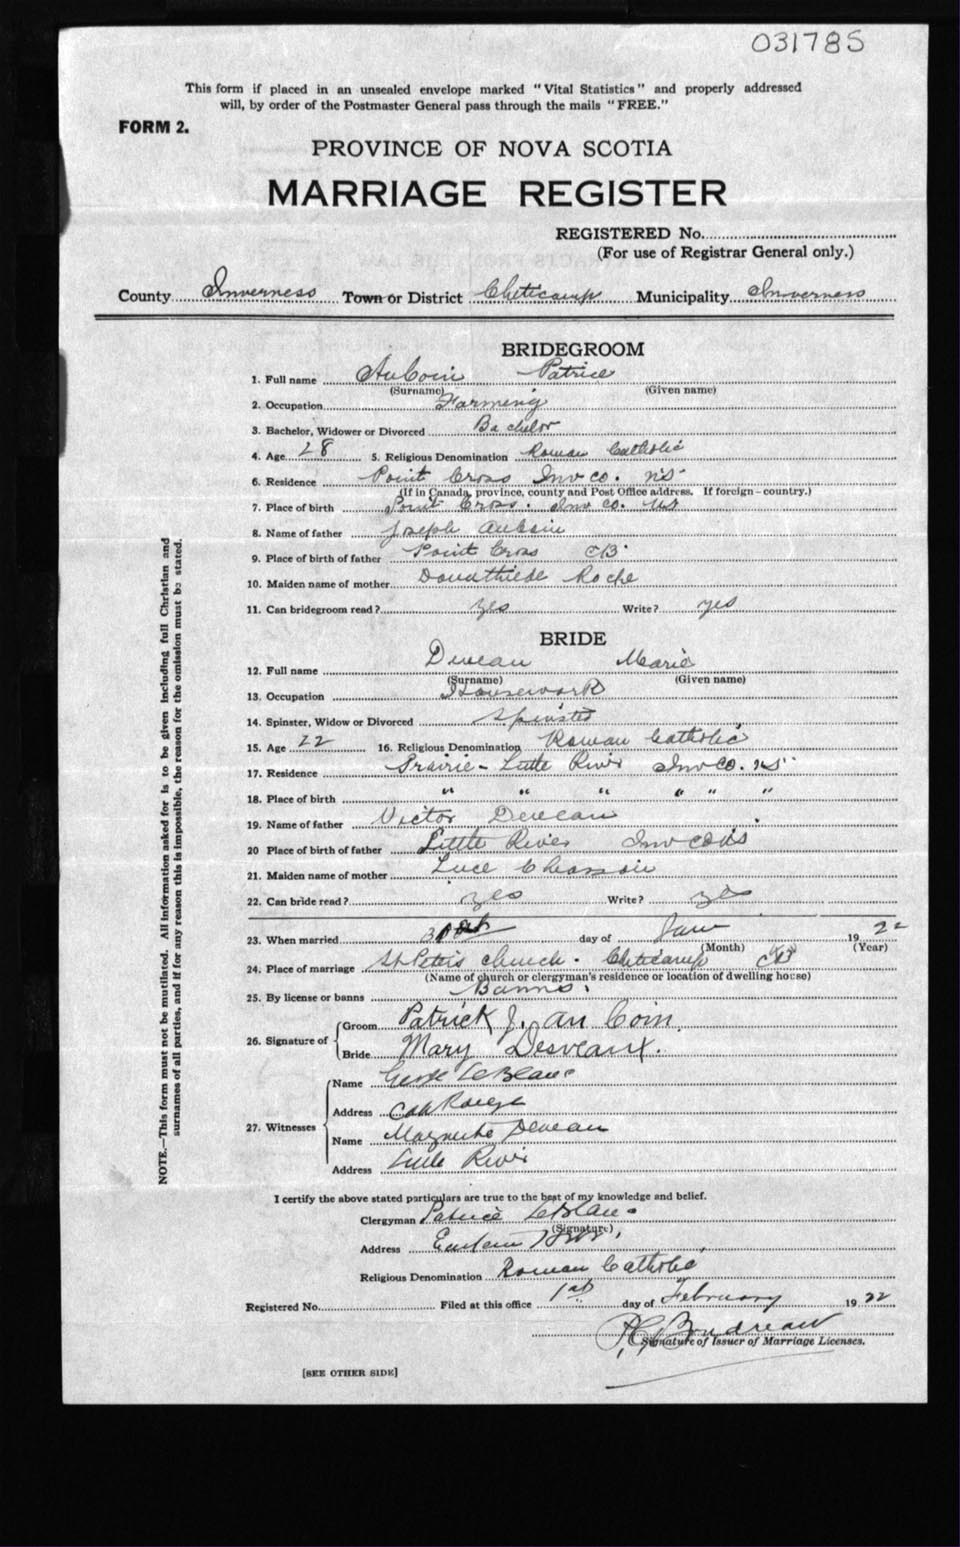 031785
This form if placed in an unsealed envelope marked "Vital Statistics" and properly addressed
will, by order of the Postmaster General pass through the mails "FREE."
FORM 2.
PROVINCE OF NOVA SCOTIA
MARRIAGE REGISTER
REGISTERED No.
(For use of Registrar General only.)
County Inverness Town or District Cheticamp Municipality Inverness
BRIDEGROOM
1. Full name AuCoin Patrice
(Surname) (Given name)
2. Occupation Farming
3. Bachelor, Widower or Divorced Bachelor
4. Age 28 5. Religious Denomination Roman Catholic
6. Residence Point Cross Inv co. NS
(If in Canada, province, county and Post Office address. If foreign - country.)
7. Place of birth Point Cross. Inv co. NS
8. Name of father Joseph Aucoin
9. Place of birth of father Point Cross CB
10. Maiden name of mother Roche
11. Can bridegroom read? yes Write? yes
BRIDE
12. Full name Deveau Marie
(Surname) (Given name)
13. Occupation Housework
14. Spinster, Widow or Divorced Spinster
15. Age 22 16. Religious Denomination Roman Catholic
17. Residence Prairie - Little River Inv co. NS
18. Place of birth " " " " " "
19. Name of father Victor Deveau
20 Place of birth of father Little River Inv co NS
21. Maiden name of mother Luce Chiasson
22. Can bride read? yes Write? yes
23. When married 30th day of Jan 1922
(Month) (Year)
24. Place of marriage St Peters Church. Cheticamp CB
(Name of church or clergyman's residence or location of dwelling house)
25. By license or banns Banns.
26. Signature of Groom Patrick J. Au Coin.
Bride Mary Desveaux.
27. Witnesses
Name George LeBlanc
Address Cap Rouge
Name Marguerite Deveau
Address Little River
I certify the above stated particulars are true to the best of my knowledge and belief.
Clergyman Patrice LeBlanc
(Signature)
Address Eastern
Religious Denomination Roman Catholic
Registered No. Filed at this office 1st day of February 1922
Boudreau
Signature of Issuer of Marriage Licenses.
[SEE OTHER SIDE]
NOTE.—This form must not be mutilated. All information asked for is to be given including full Christian and
surnames of all parties, and if for any reason this is impossible, the reason for the omission must be stated.